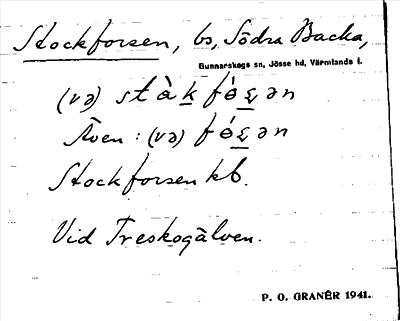 Stockforsen, bs, Södra Backa,
Gunnarskogs sn, Jösse hd, Värmlands l.
(və) stàk fó̱ꞩ̱ən
Även : (və) fóꞩ̱ən
Stockforsen kb.
Vid Treskogälven.
P. O. GRANÉR 1941.